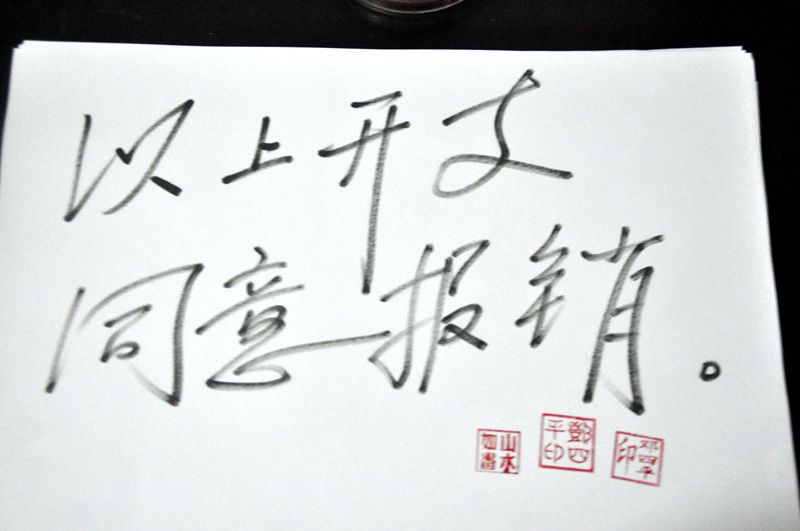 以上开支
同意报销。
山水如書
鄧四平印
邓四平印